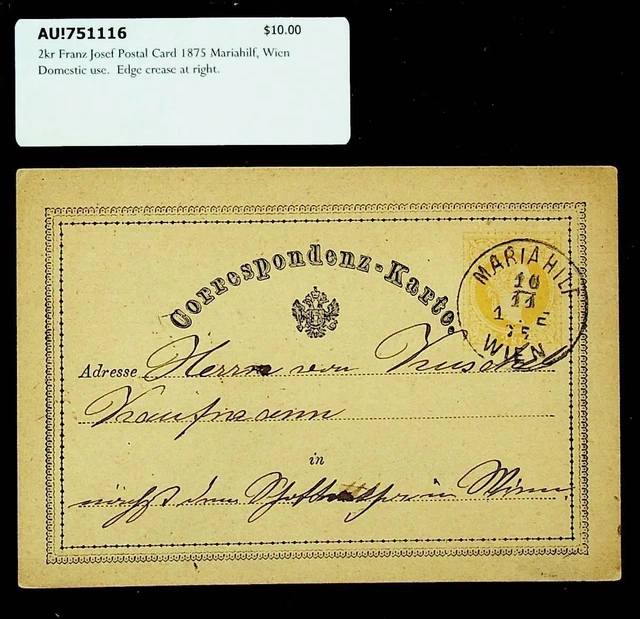 AU!751116 $10.00
2kr Franz Josef Postal Card 1875 Mariahilf, Wien
Domestic use. Edge crease at right.
Correspondenz-Karte.
MARIAHILF
10
11
75
WIEN
Adresse Herrn von
Kaufmann
in
nächst dem in Wien.